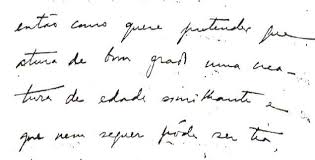 então como quere pretender que
atura de bom grado uma crea-
tura de edade similhante e
que nem sequer póde ser tia,